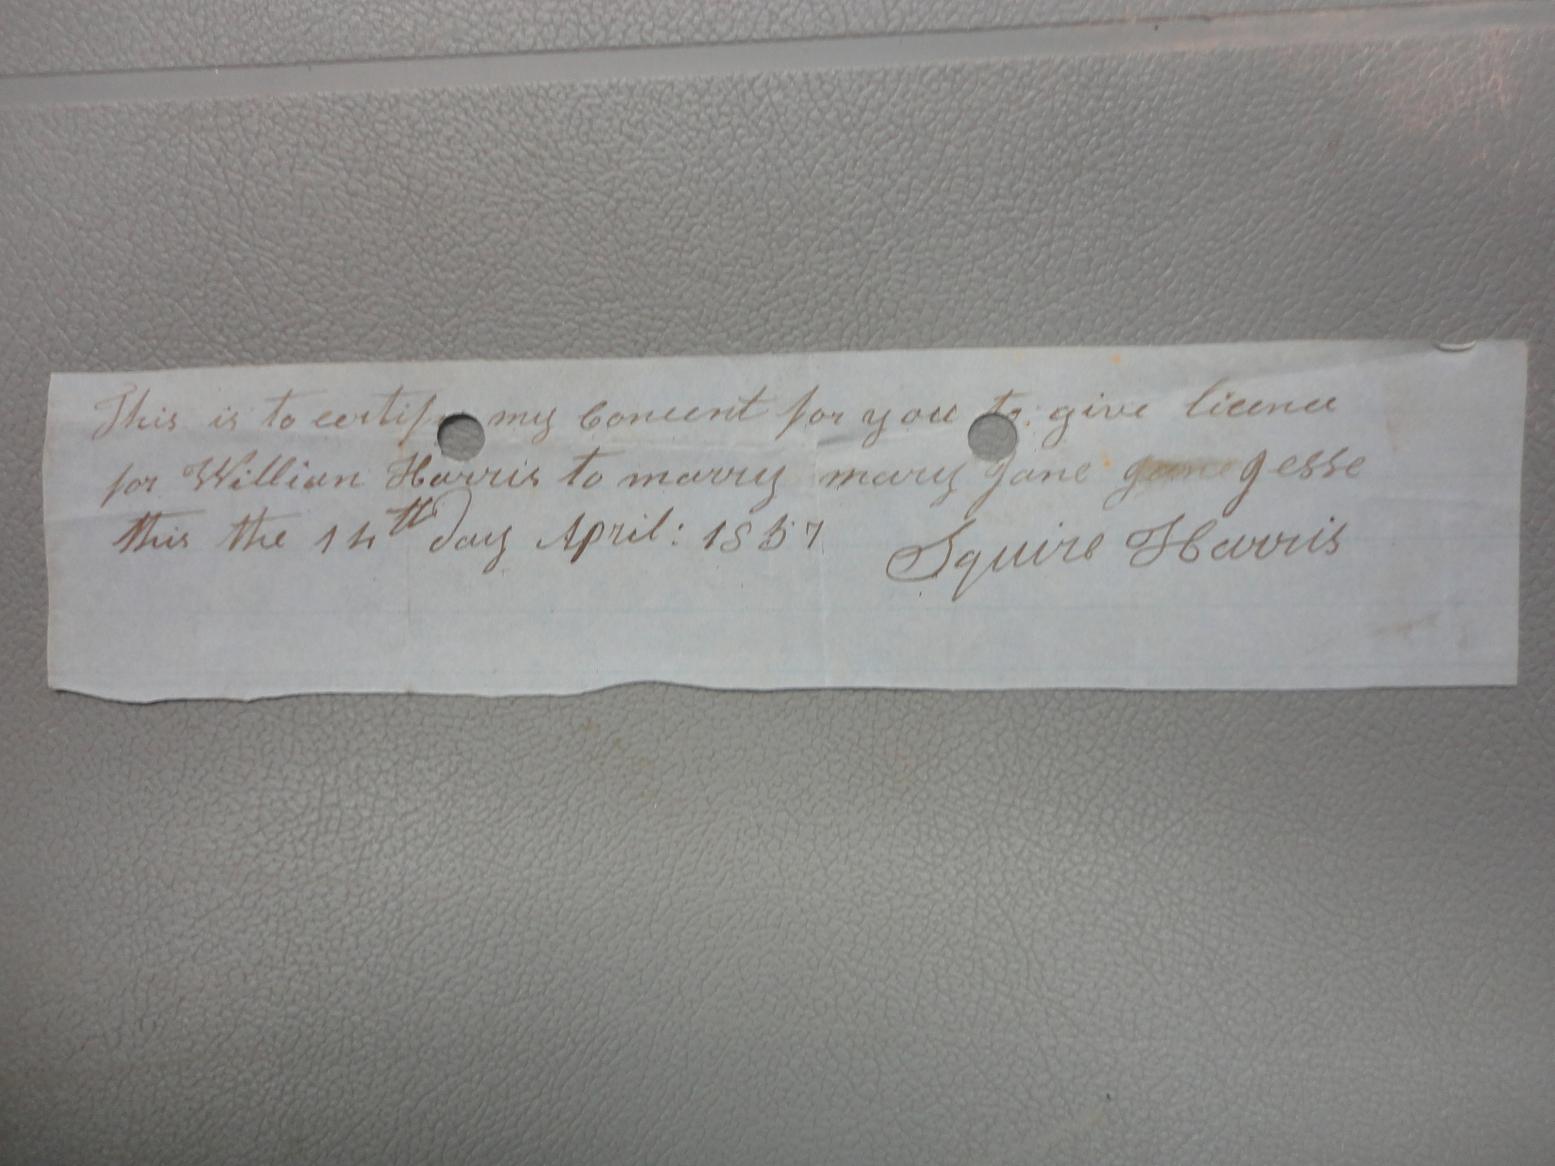 This is to certify my Concent for you to give licence
for Willian Harris to marry mary Jane gesse
this the 14th day April: 1857 Squire Harris